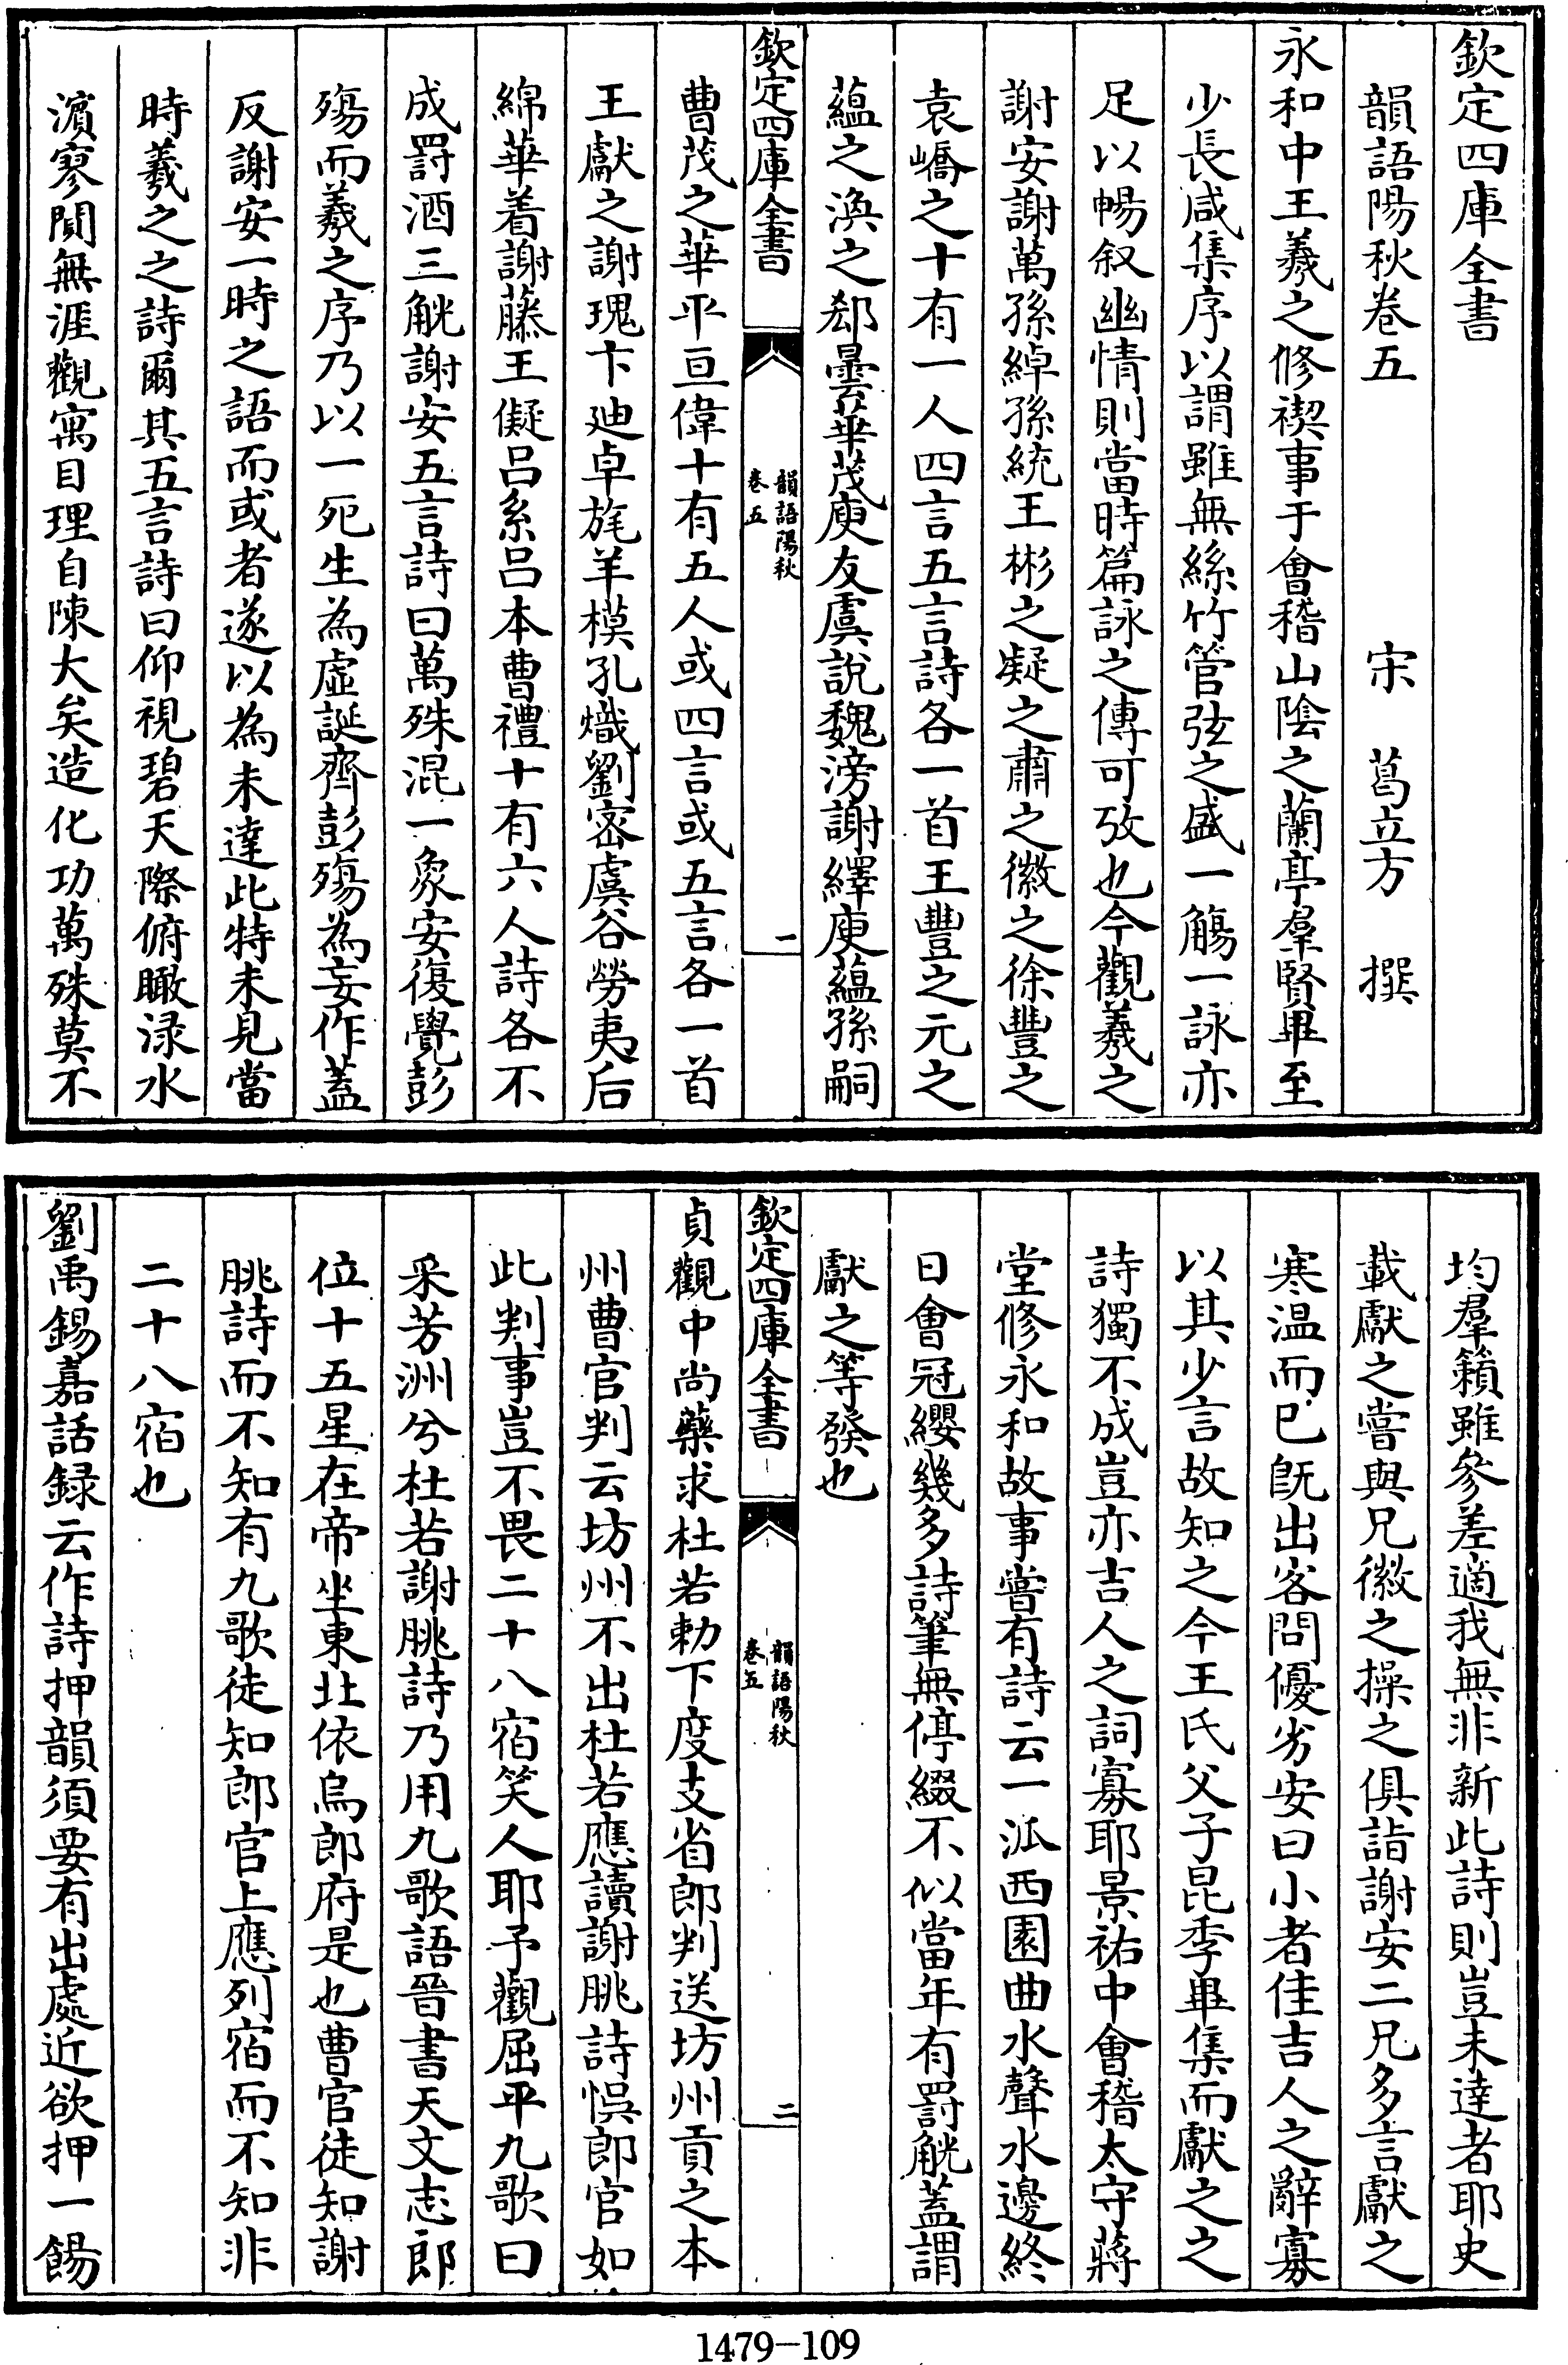 欽定四庫全書
韻語陽秋卷五　宋　葛立方　撰
永和中王羲之修禊事于會稽山陰之蘭亭羣賢畢至
少長咸集序以謂雖無絲竹管弦之盛一觴一詠亦
足以暢叙幽情則當時篇詠之傳可攷也今觀羲之
謝安謝萬孫綽孫統王彬之凝之肅之徽之徐豐之
袁嶠之十有一人四言五言詩各一首王豐之元之
蘊之渙之郄曇華茂庾友虞說魏滂謝繹庾蘊孫嗣
欽定四庫全書
韻語陽秋
卷五
一
曹茂之華平亘偉十有五人或四言或五言各一首
王獻之謝瑰卞廸卓旄羊模孔熾劉密虞谷勞夷后
綿華着謝藤王儗吕系吕本曹禮十有六人詩各不
成罸酒三觥謝安五言詩曰萬殊混一象安復覺彭
殤而羲之序乃以一死生為虛誕齊彭殤為妄作蓋
反謝安一時之語而或者遂以為未達此特未見當
時羲之之詩爾其五言詩曰仰視碧天際俯瞰淥水
濵寥閴無涯觀寓目理自陳大矣造化功萬殊莫不
均羣籟雖參差適我無非新此詩則豈未達者耶史
載獻之嘗與兄徽之操之俱詣謝安二兄多言獻之
寒温而已既出客問優劣安曰小者佳吉人之辭寡
以其少言故知之今王氏父子昆季畢集而獻之之
詩獨不成豈亦吉人之詞寡耶景祐中會稽太守蔣
堂修永和故事嘗有詩云一派西園曲水聲水邊終
日會冠纓幾多詩筆無停綴不似當年有罸觥蓋謂
獻之等發也
欽定四庫全書
韻語陽秋
卷五
二
貞觀中尚藥求杜若勅下度支省郎判送坊州貢之本
州曹官判云坊州不出杜若應讀謝朓詩悞郎官如
此判事豈不畏二十八宿笑人耶予觀屈平九歌曰
采芳洲兮杜若謝朓詩乃用九歌語晉書天文志郎
位十五星在帝坐東北依烏郎府是也曹官徒知謝
朓詩而不知有九歌徒知郎官上應列宿而不知非
二十八宿也
劉禹錫嘉話録云作詩押韻須要有出處近欲押一餳
1479-109